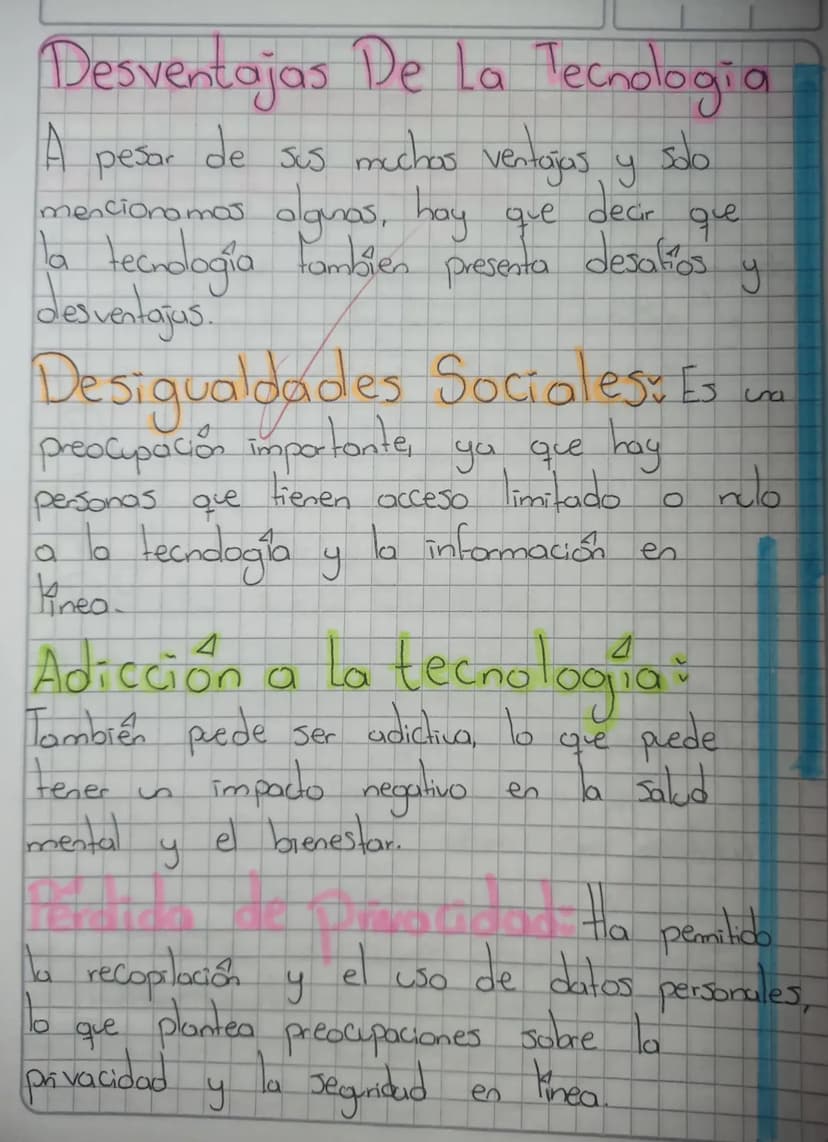 Desventajas De La Tecnologia
A pesar de sus muchas ventajas, y solo
mencionamos algunas, hay que decir que
la tecnología también presenta desafíos y
desventajas.
Desigualdades Sociales: Es una
preocupación importante, ya que hay
personas que tienen acceso limitado o nulo
a la tecnología y la información en
línea.
Adicción a la tecnología:
También puede ser adictiva, lo que puede
tener un impacto negativo en la salud
mental y el bienestar.
Pérdida de Privacidad: Ha permitido
la recopilación y el uso de datos personales,
lo que plantea preocupaciones sobre la
privacidad y la seguridad en línea.